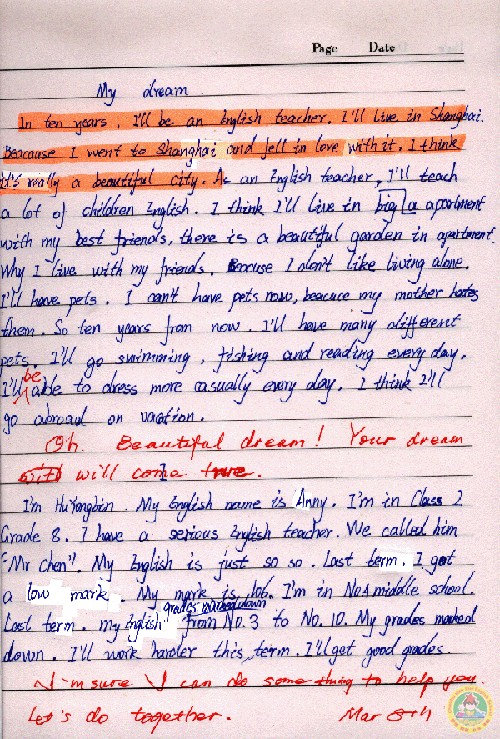 Page Date
My dream
In ten years, I'll be an English teacher. I'll live in Shanghai.
Beacause I went to Shanghai and fell in love with it. I think
it's really a beautiful city. As an English teacher, I'll teach
a lot of children English. I think I'll live in big a apartment
with my best friends, there is a beautiful garden in apartment.
Why I live with my friends. Because I don't like living alone.
I'll have pets. I can't have pets now, because my mother hates
them. So ten years from now. I'll have many different
pets. I'll go swimming, fishing and reading every day.
I'll be able to dress more casually every day. I think I'll
go abroad on vacation.
Oh. Beautiful dream! Your dream
will come true.
I'm HuYongbin. My English name is Anny. I'm in Class 2
Grade 8. I have a serious English teacher. We called him
"Mr Chen". My English is just so so. Last term. I got
a low mark. My mark is lot. I'm in No.4 middle school.
Last term. my English grades marked down from No.3 to No.10. My grades marked
down. I'll work harder this term. I'll get good grades.
I'm sure I can do something to help you.
Let's do together. Mar 8th